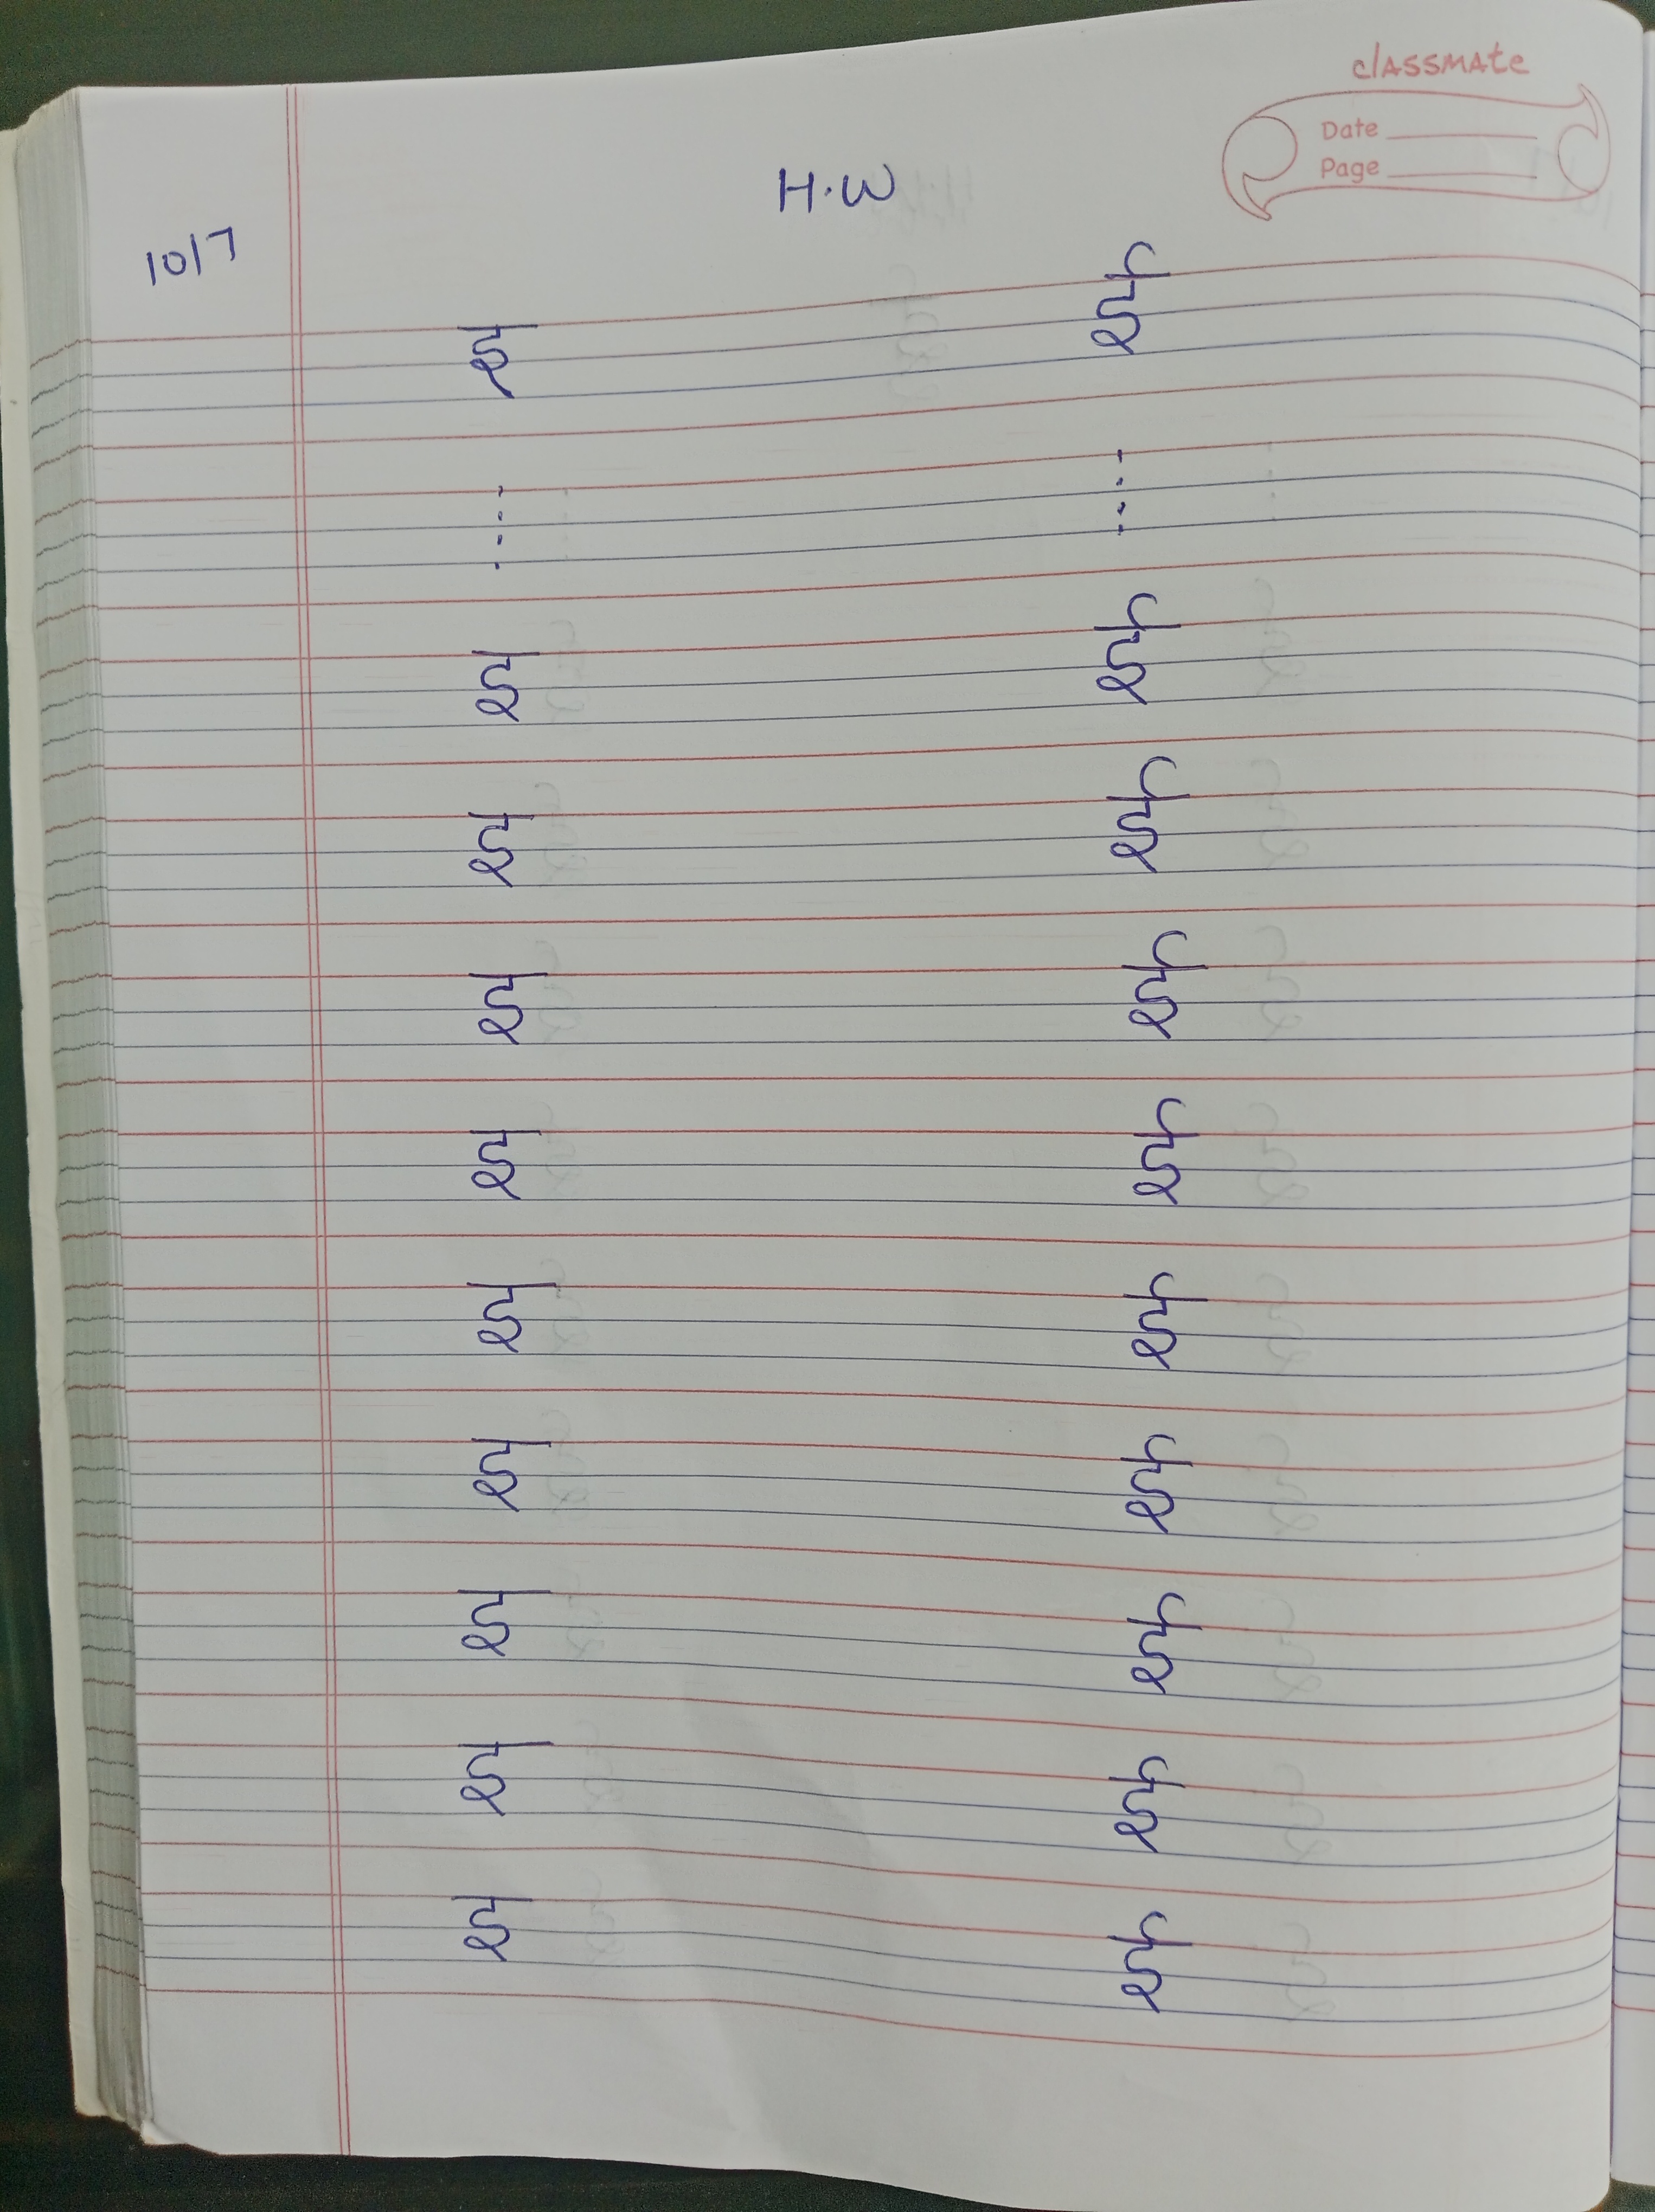 classmate
Date
Page
H.W
10/7
इ ई
.... ....
इ ई
इ ई
इ ई
इ ई
इ ई
इ ई
इ ई
इ ई
इ ई